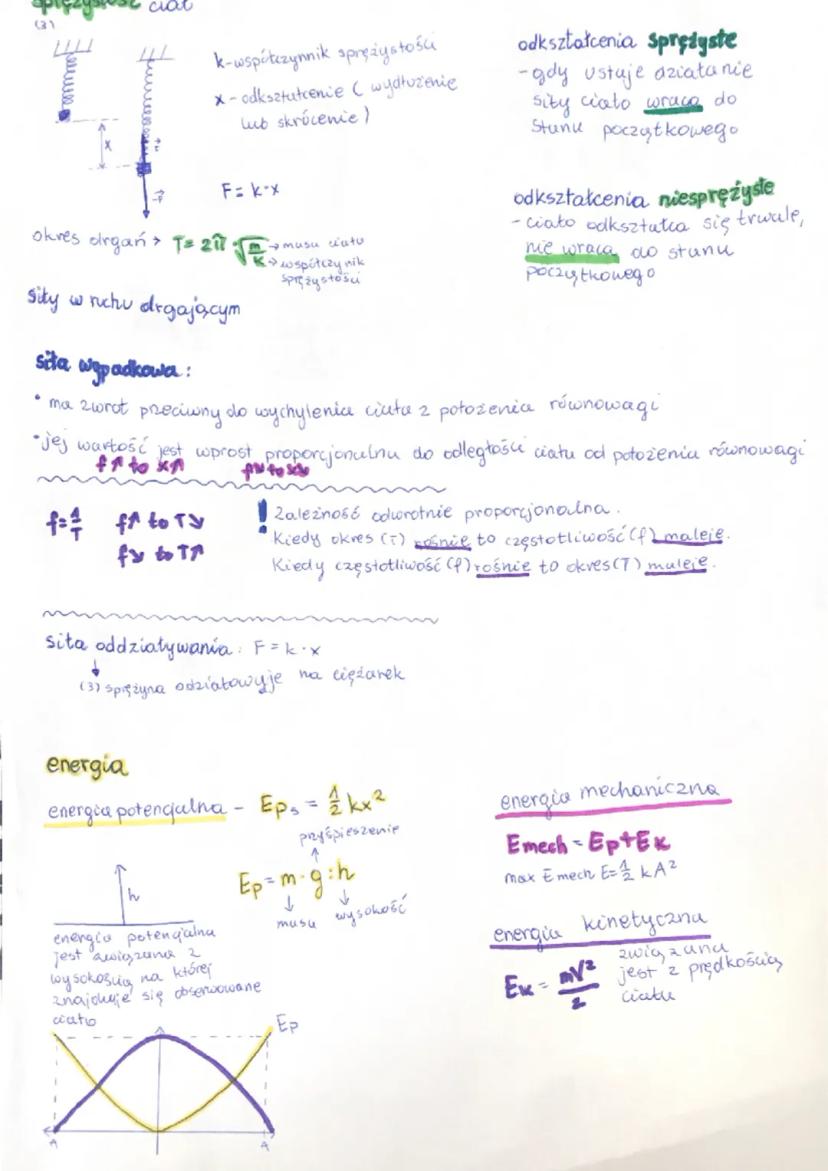 sprężystość ciał
(3)
k-współczynnik sprężystości
x - odkształcenie ( wydłużenie
lub skrócenie )
x
F
F
F = k·x
okres drgań > T = 2π √m/k → masa ciała
→ współczynnik
sprężystości
odkształcenia sprężyste
- gdy ustaje działanie
siły ciało wraca do
stanu początkowego
odkształcenia niesprężyste
- ciało odkształca się trwale,
nie wraca do stanu
początkowego
siły w ruchu drgającym
siła wypadkowa:
• ma zwrot przeciwny do wychylenia ciała z położenia równowagi
• jej wartość jest wprost proporcjonalna do odległości ciała od położenia równowagi
f↗ to x↗ f↘ to x↘
f = 1/T f↗ to T↘
f↘ to T↗
! Zależność odwrotnie proporcjonalna.
Kiedy okres (T) rośnie to częstotliwość (f) maleje.
Kiedy częstotliwość (f) rośnie to okres (T) maleje.
siła oddziaływania: F = k·x
↓
(3) sprężyna odziałowyje na ciężarek
energia
energia potencjalna - Eps = 1/2 kx²
przyśpieszenie
↑
Ep = m·g·h
↓ ↓
masa wysokość
h
energia potencjalna
jest związana z
wysokością na której
znajduje się obserwowane
ciało
Ep
A A
energia mechaniczna
Emech = Ep+Ek
max Emech E= 1/2 kA²
energia kinetyczna
Ek = mV²/2 związana
jest z prędkością
ciała